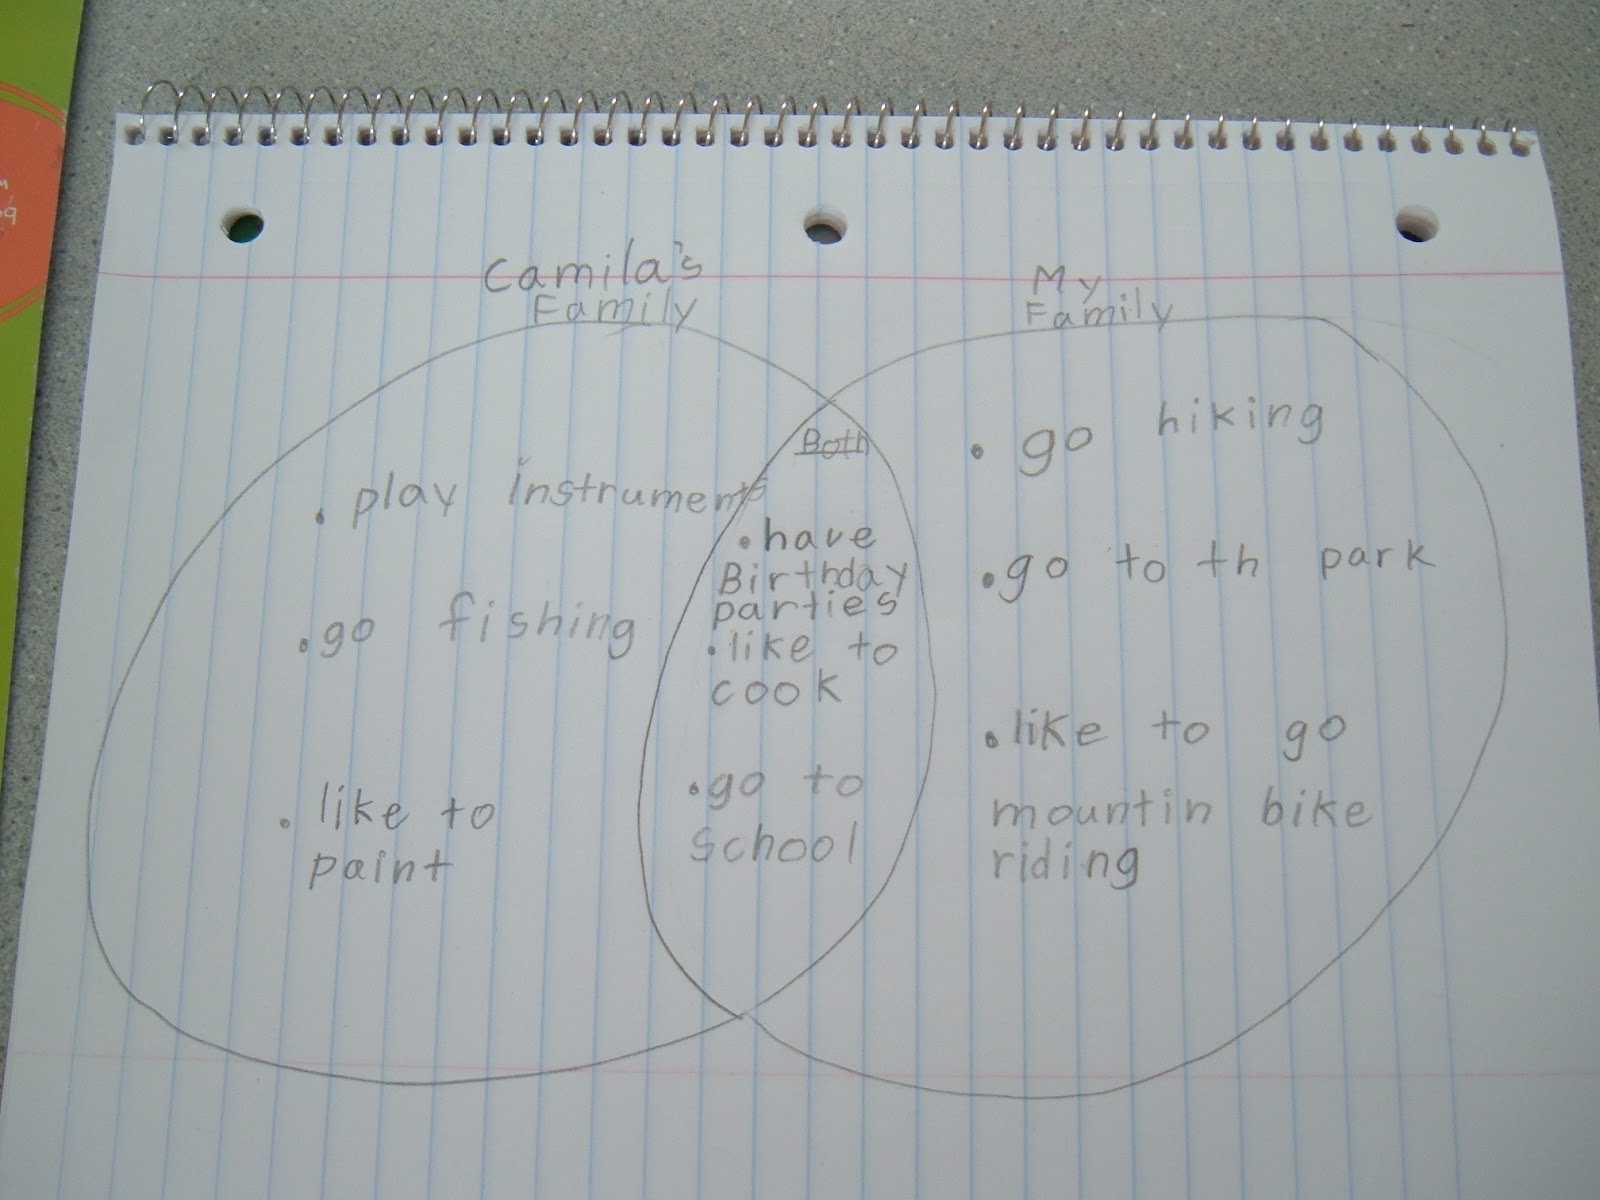 Camila's
Family
My
Family
• play instruments
• go fishing
• like to
paint
Both
• have
Birthday
parties
• like to
cook
• go to
school
• go hiking
• go to th park
• like to go
mountin bike
riding